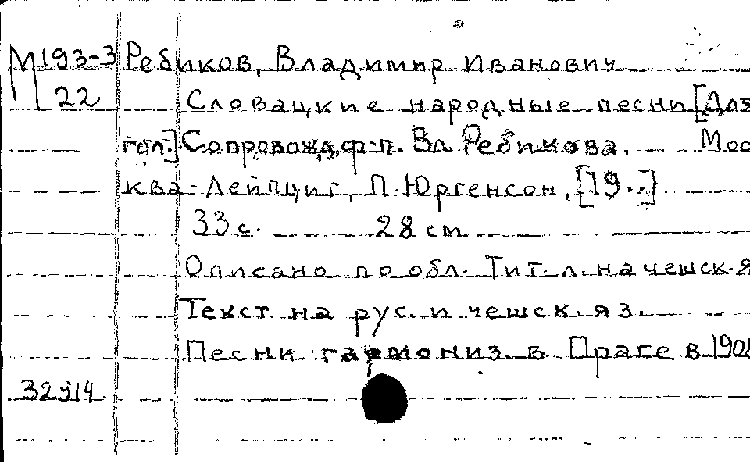 М193-3 Ребиков, Владимир Иванович
22 Словацкие народные песни [Для
гол.] Сопровожд. ф-п. Вл. Ребикова. Мос
ква-Лейпциг, П. Юргенсон, [19..]
33 с. 28 см
Описано по обл. Тит. л. на чешск. я
Текст на рус. и чешск. яз.
Песни гармониз. в Праге в
32914